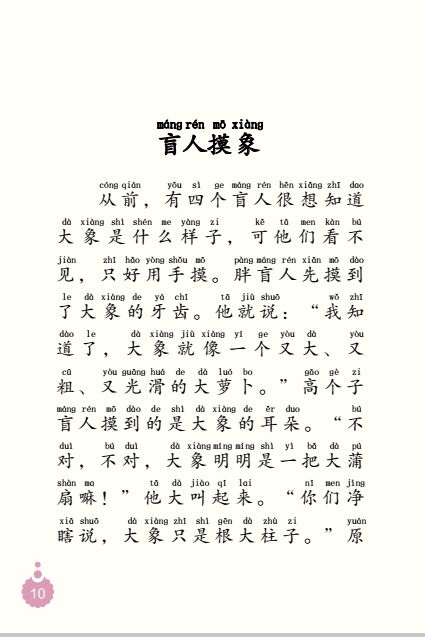 máng rén mō xiàng
盲人摸象
cóng qián yǒu sì ge máng rén hěn xiǎng zhī dao
从前，有四个盲人很想知道
dà xiàng shì shén me yàng zi kě tā men kàn bú
大象是什么样子，可他们看不
jiàn zhǐ hǎo yòng shǒu mō pàng máng rén xiān mō dào
见，只好用手摸。胖盲人先摸到
le dà xiàng de yá chǐ tā jiù shuō wǒ zhī
了大象的牙齿。他就说：“我知
dào le dà xiàng jiù xiàng yí ge yòu dà yòu
道了，大象就像一个又大、又
cū yòu guāng huá de dà luó bo gāo gè zi
粗、又光滑的大萝卜。”高个子
máng rén mō dào de shì dà xiàng de ěr duo bú
盲人摸到的是大象的耳朵。“不
duì bú duì dà xiàng míng míng shì yì bǎ dà pú
对，不对，大象明明是一把大蒲
shàn ma tā dà jiào qǐ lai nǐ men jìng
扇嘛！”他大叫起来。“你们净
xiā shuō dà xiàng zhǐ shì gēn dà zhù zi yuán
瞎说，大象只是根大柱子。”原
10